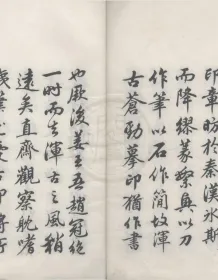 印章昉於秦漢水斯
而降繆篆繁興以刀
作筆以石作簡故渾
古蒼勁摹印猶作書
也厥後姜王吾趙冠絕
一時而去渾古之風稍
遠矣直齊觀察耽嗜